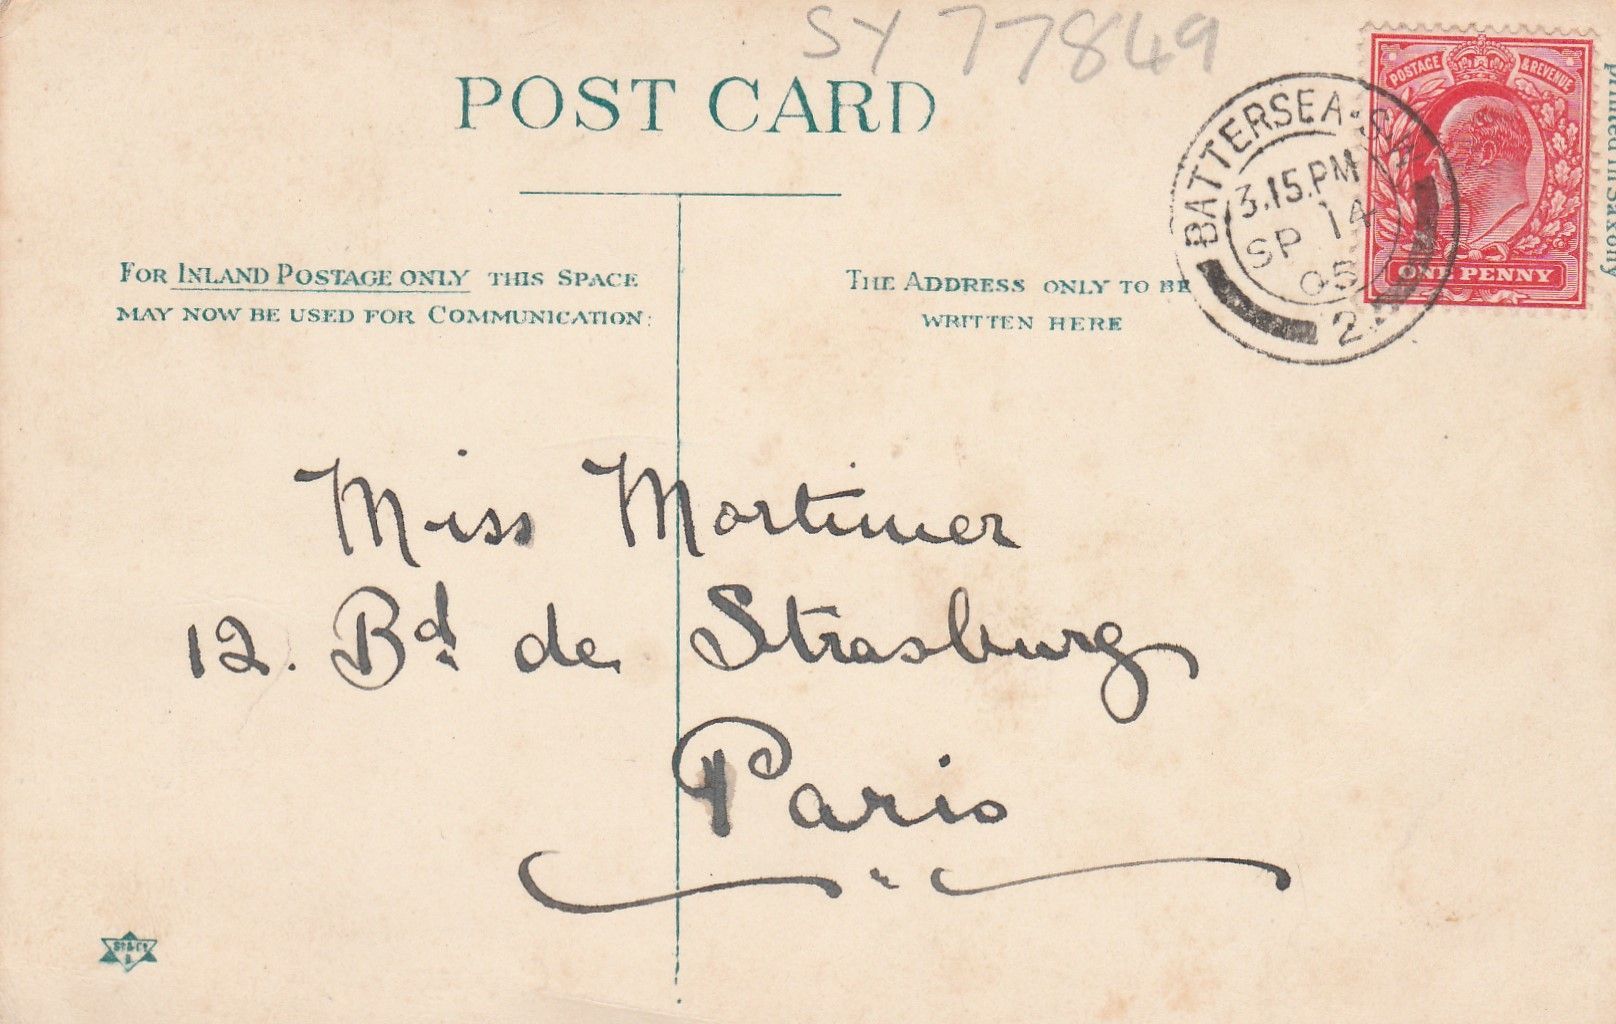 SY 77849
POST CARD
POSTAGE & REVENUE
ONE PENNY
printed in Saxony
BATTERSEA. S.W
3.15.PM
SP 14
05
2
FOR INLAND POSTAGE ONLY THIS SPACE
MAY NOW BE USED FOR COMMUNICATION:
THE ADDRESS ONLY TO BE
WRITTEN HERE
Miss Mortimer
12. Bd. de Strasburg
Paris